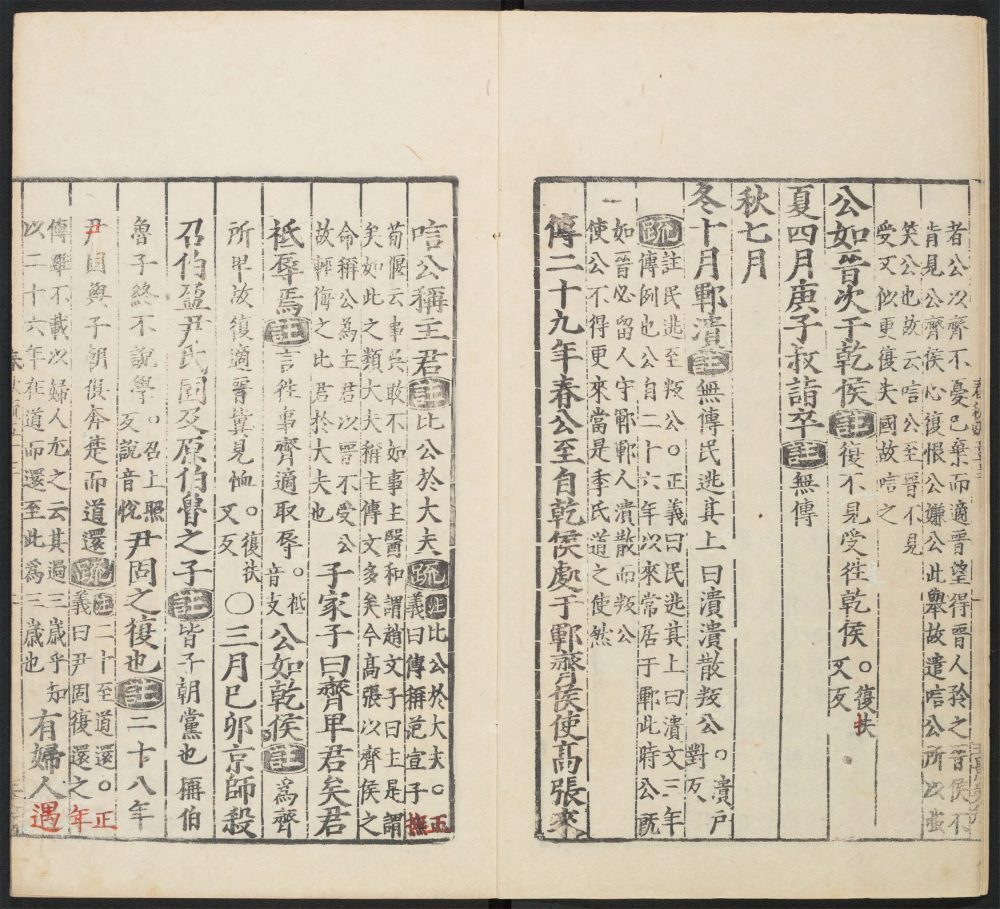 者公以齊不憂己棄而適晉望得晉人矜之晉侯不
肯見公齊侯心復恨公嫌公此舉故遣唁公所以蚩
笑公也故云唁公至晉不見
受又似更復失國故唁之
公如晉次于乾侯註復不見受往乾侯○復扶
又反
夏四月庚子叔詣卒註無傳
秋七月
冬十月鄆潰註無傳民逃其上曰潰潰散叛公○潰戶
對反
疏註民逃至叛公○正義曰民逃其上曰潰文三年
傳例也公自二十六年以來常居于鄆此時公旣
如晉必留人守鄆鄆人潰散而叛公
使公不得更來當是季氏道之使然
傳二十九年春公至自乾侯處于鄆齊侯使高張來
唁公稱主君註比公於大夫疏註比公於大夫○正
義曰傳稱范宣子撫
荀偃云事吳敢不如事主醫和謂趙文子曰主是謂
矣如此之類大夫稱主傳文多矣今高張以齊侯之
命稱公為主君以晉不受公
故輕侮之比君於大夫也 子家子曰齊卑君矣君
祇辱焉註言往事齊適取辱○祇
音支 公如乾侯註為齊
所卑故復適晉冀見恤○復扶
又反 ○三月己卯京師殺
召伯盈尹氏固及原伯魯之子註皆子朝黨也稱伯
魯子終不說學○召上照
反說音悅 尹固之復也註二十八年
尹固與子朝俱奔楚而道還疏註二十至道還○正
義曰尹固復還之年
傳雖不載以婦人尤之云其過三歲乎知
以二十六年在道而還至此為三歲也 有婦人遇